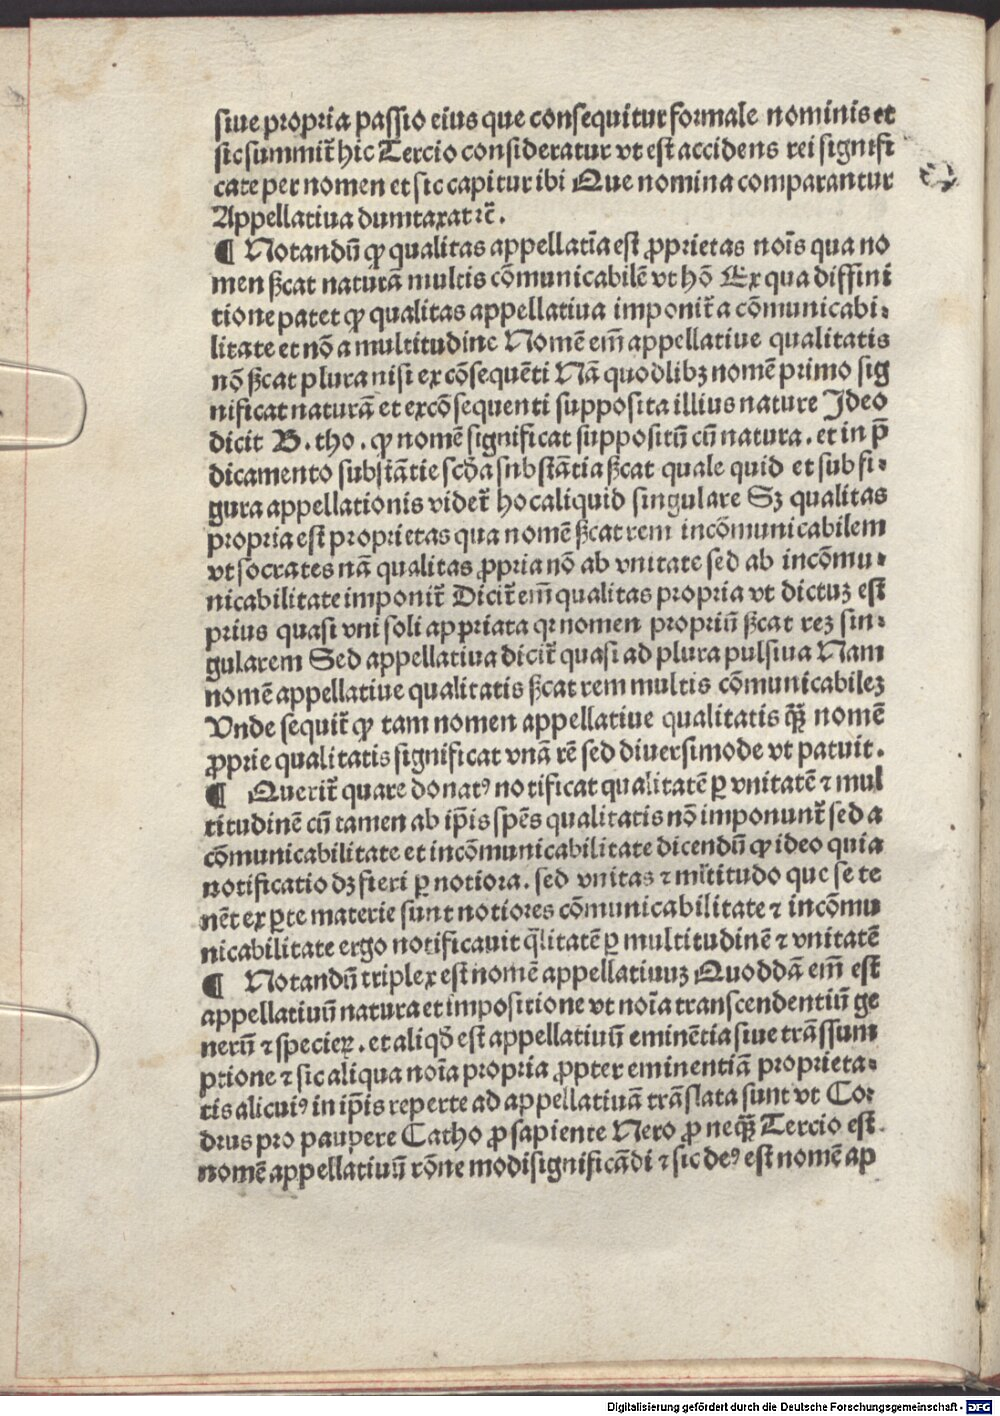 siue propria passio eius que consequitur formale nominis et
sic summit᷑ hic Tercio consideratur vt est accidens rei signifi
cate per nomen et sic capitur ibi Que nomina comparantur
Appellatiua dumtaxat ⁊c̄.
¶ Notandū ꝙ qualitas appellatīa est ꝓprietas noīs qua no
men ß̄cat naturā multis cōmunicabilē vt hō Ex qua diffini
tione patet ꝙ qualitas appellatiua imponit᷑ a cōmunicabi⸗
litate et nō a multitudine Nomē em̄ appellatiue qualitatis
nō ß̄cat plura nisi ex cōsequēti Nā quodlibꝫ nomē primo sig
nificat naturā et excōsequenti supposita illius nature Ideo
dicit B. tho. ꝙ nomē significat suppositū cū natura. et in p̄
dicamento substātie scd̄a substātia ß̄cat quale quid et sub fi⸗
gura appellationis videt᷑ hocaliquid singulare Sꝫ qualitas
propria est proprietas qua nomē ß̄cat rem incōmunicabilem
vt socrates nā qualitas ꝓpria nō ab vnitate sed ab incōmu⸗
nicabilitate imponit᷑ Dicit᷑ em̄ qualitas propria vt dictuꝫ est
prius quasi vni soli appriata qꝛ nomen propriū ß̄cat reꝫ sin⸗
gularem Sed appellatiua dicit᷑ quasi ad plura pulsiua Nam
nomē appellatiue qualitatis ß̄cat rem multis cōmunicabileꝫ
Vnde sequit᷑ ꝙ tam nomen appellatiue qualitatis qꝫ̄ nomē
ꝓprie qualitatis significat vnā rē sed diuersimode vt patuit.
¶ Querit᷑ quare donatꝰ notificat qualitatē ꝑ vnitatē ⁊ mul
titudinē cū tamen ab ip̄is spēs qualitatis nō imponunt᷑ sed a
cōmunicabilitate et incōmunicabilitate dicendū ꝙ ideo quia
notificatio dꝫ fieri ꝑ notiora. sed vnitas ⁊ ml̄titudo que se te
nēt ex ꝑte materie sunt notiores cōmunicabilitate ⁊ incōmu
nicabilitate ergo notificauit q̄litatē ꝑ multitudinē ⁊ vnitatē
¶ Notandū triplex est nomē appellatiuuꝫ Quoddā em̄ est
appellatiuū natura et impositione vt noīa transcendentiū ge
nerū ⁊ specieꝝ. et aliqd̄ est appellatiuū eminētia siue trāssum
ptione ⁊ sic aliqua noīa propria ꝓpter eminentiā proprieta⸗
tis alicuiꝰ in ip̄is reperte ad appellatiuā trāslata sunt vt Co⸗
drus pro paupere Catho ꝓ sapiente Nero ꝓ neqꝫ̄ Tercio est
nomē appellatiuū rōne modisignificādi ⁊ sic deꝰ est nomē ap
Digitalisierung gefördert durch die Deutsche Forschungsgemeinschaft - DFG